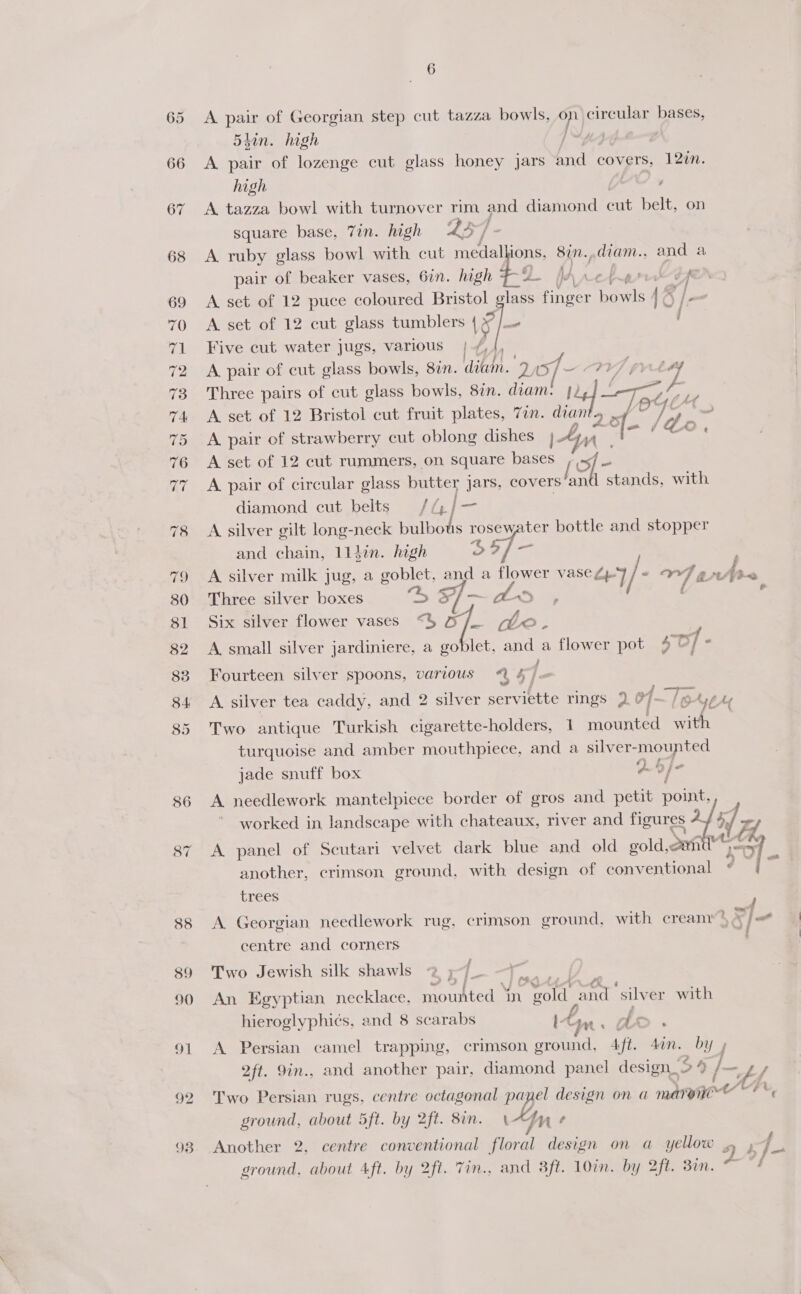 6
65 A pair of Georgian step cut tazza bowls, on circular bases,
5½in. high
66 A pair of lozenge cut glass honey jars and covers, 12in.
high
67 A tazza bowl with turnover rim and diamond cut belt, on
square base, 7in. high 25/-
68 A ruby glass bowl with cut medallions, 8in. diam., and a
pair of beaker vases, 6in. high
69 A set of 12 puce coloured Bristol glass finger bowls 18/-
70 A set of 12 cut glass tumblers 18/-
71 Five cut water jugs, various
72 A pair of cut glass bowls, 8in. diam. 25/-
73 Three pairs of cut glass bowls, 8in. diam.
74 A set of 12 Bristol cut fruit plates, 7in. diam.
75 A pair of strawberry cut oblong dishes
76 A set of 12 cut rummers, on square bases
77 A pair of circular glass butter jars, covers and stands, with
diamond cut belts
78 A silver gilt long-neck bulbous rosewater bottle and stopper
and chain, 11½in. high 35/-
79 A silver milk jug, a goblet, and a flower vase
80 Three silver boxes 35/- do
81 Six silver flower vases do.
82 A small silver jardiniere, a goblet, and a flower pot
83 Fourteen silver spoons, various
84 A silver tea caddy, and 2 silver serviette rings 20/-
85 Two antique Turkish cigarette-holders, 1 mounted with
turquoise and amber mouthpiece, and a silver-mounted
jade snuff box 25/-
86 A needlework mantelpiece border of gros and petit point,
worked in landscape with chateaux, river and figures
87 A panel of Scutari velvet dark blue and old gold, and
another, crimson ground, with design of conventional
trees
88 A Georgian needlework rug, crimson ground, with cream
centre and corners
89 Two Jewish silk shawls
90 An Egyptian necklace, mounted in gold and silver with
hieroglyphics, and 8 scarabs do.
91 A Persian camel trapping, crimson ground, 4ft. 4in. by
2ft. 9in., and another pair, diamond panel design
92 Two Persian rugs, centre octagonal panel design on a maroon
ground, about 5ft. by 2ft. 8in.
93 Another 2, centre conventional floral design on a yellow
ground, about 4ft. by 2ft. 7in., and 3ft. 10in. by 2ft. 3in.